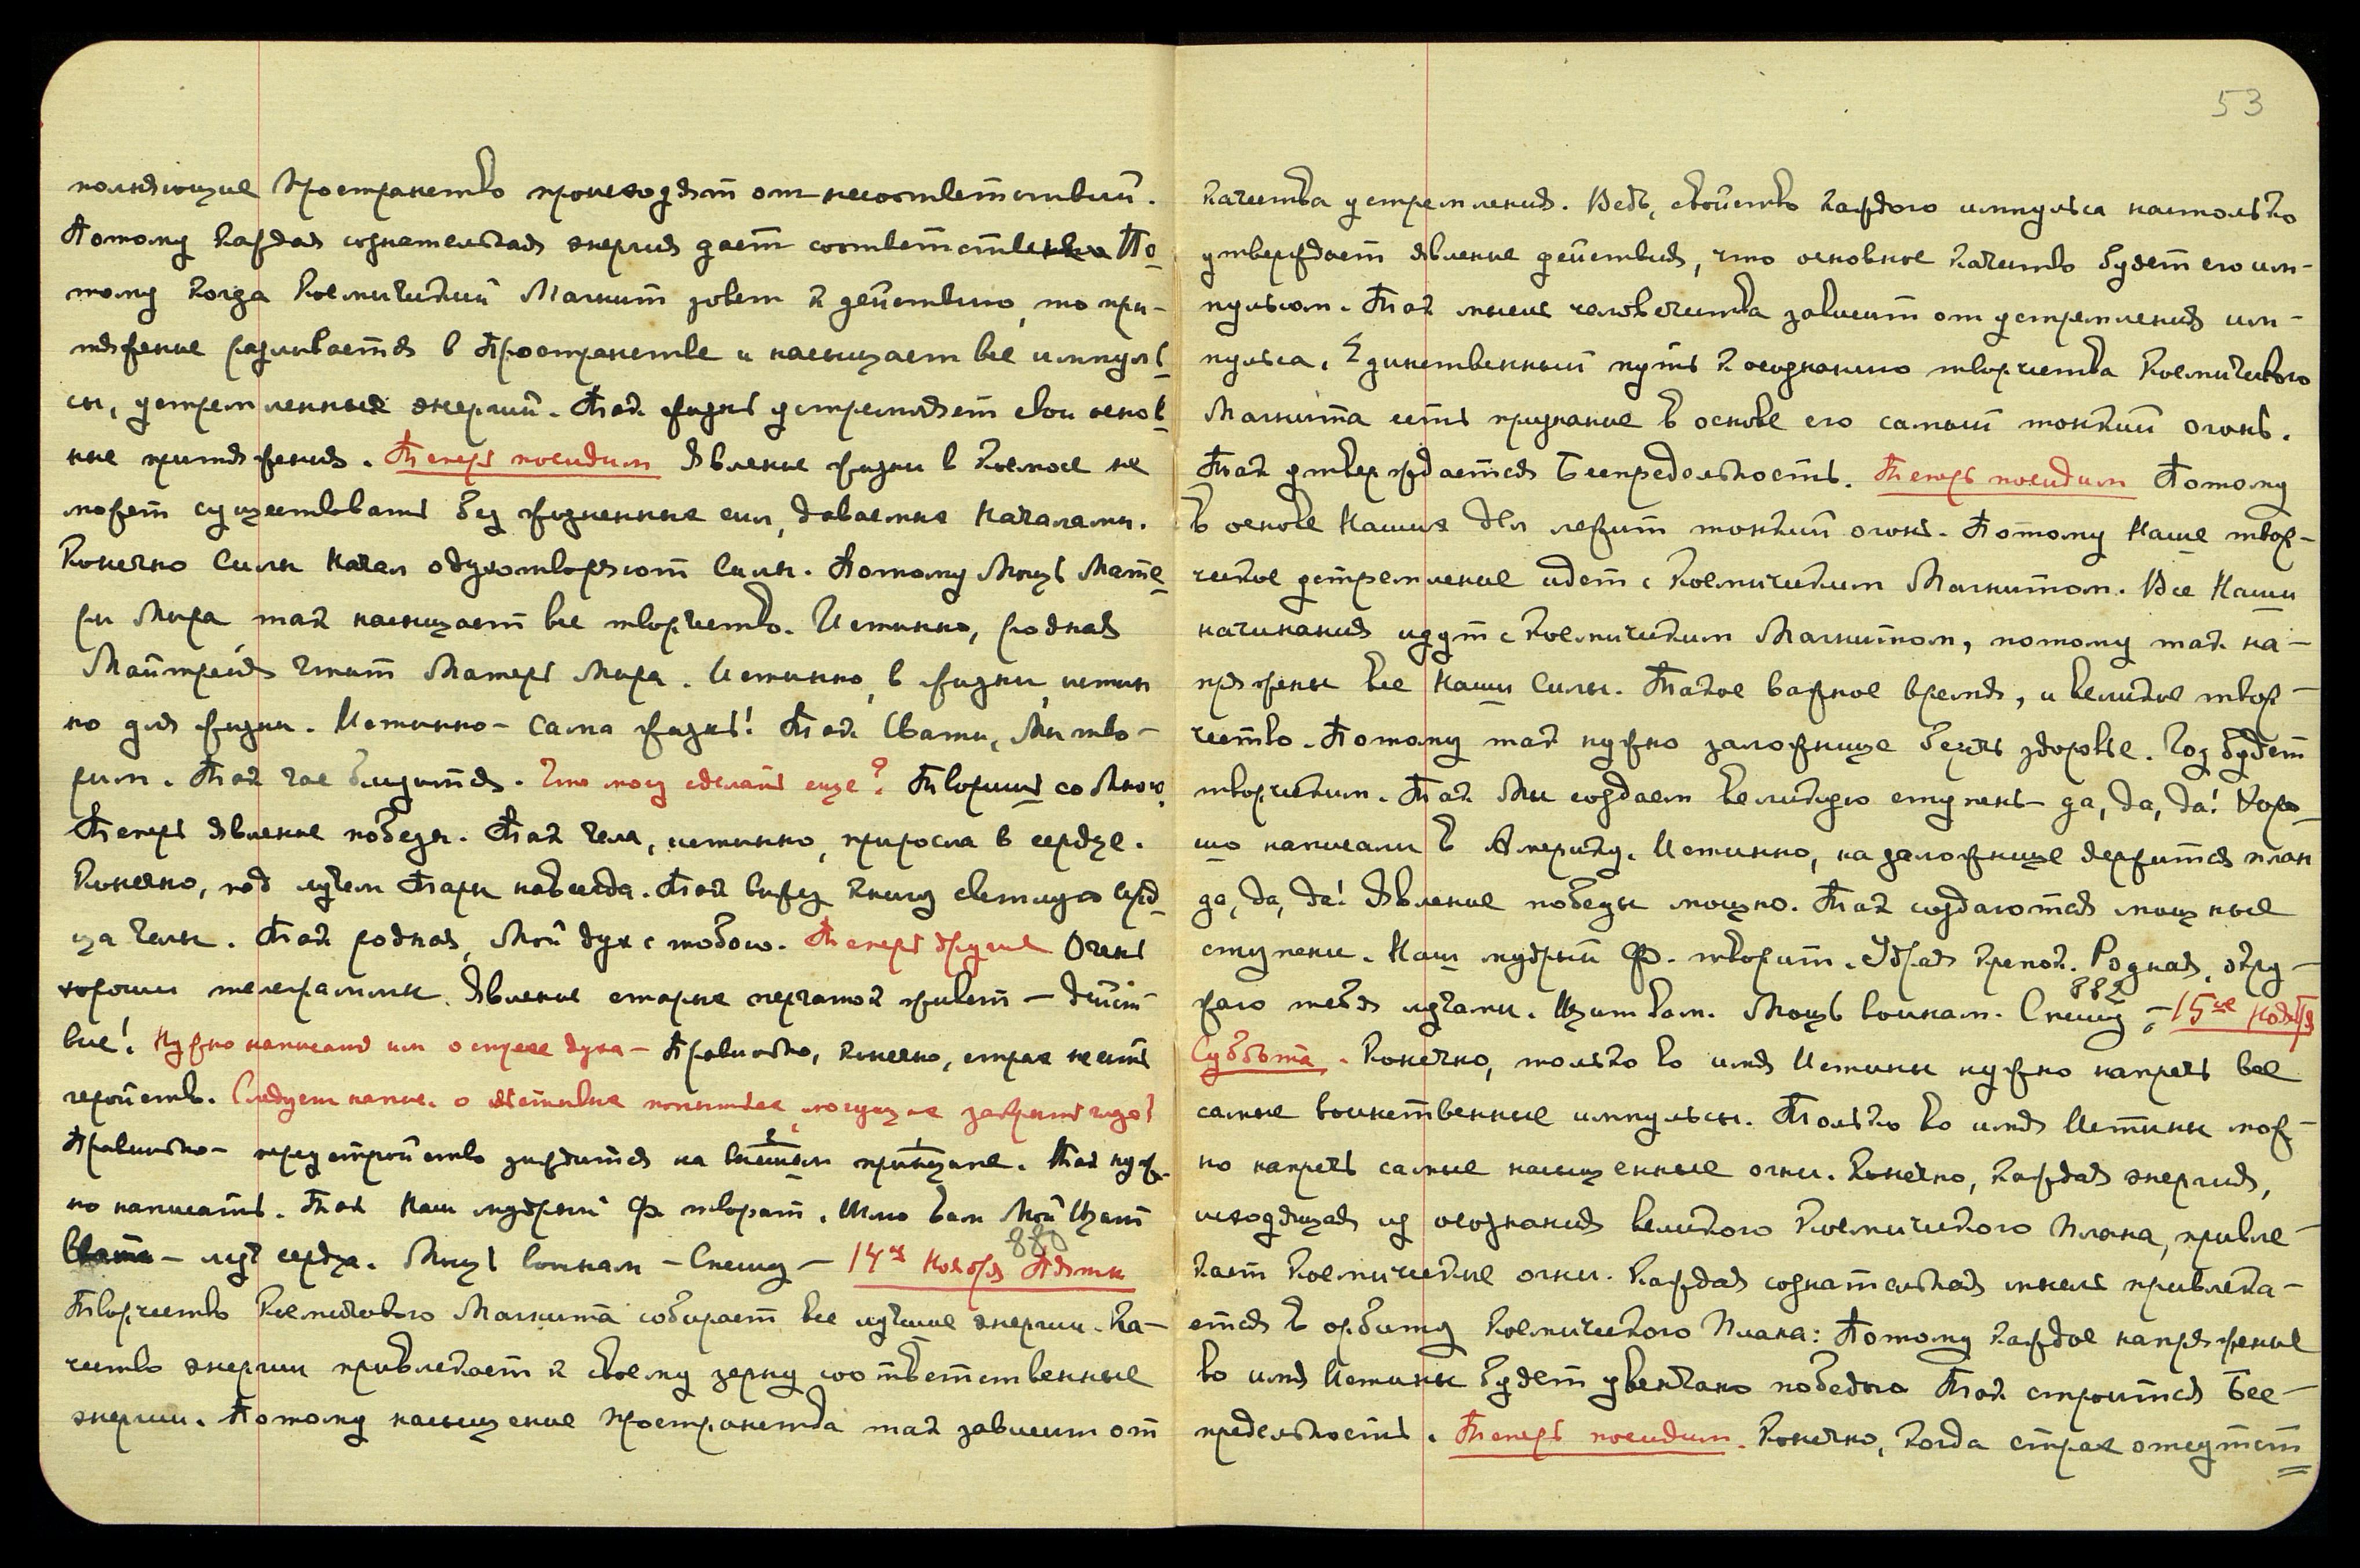 полняющие Пространство происходят от несоответствий.
Потому каждая сознательная энергия дает соответствие. По-
тому когда Космический Магнит зовет к действию, то при-
тяжение разливается в Пространстве и насыщает все импуль
сы, устремленных энергий. Так жизнь устремляет свои основ
ные притяжения. Теперь посидим Явление жизни в Космосе не
может существовать без жизненных сил, даваемых Началами.
Конечно Силы Начал одухотворяют Силы. Потому Мощь Мате
ри Мира так насыщает все творчество. Истинно, родная
Майтрейя чтит Матерь Мира. Истинно, в жизни, истин
но для жизни. Истинно – сама жизнь! Так Свати, Мы тво-
рим. Так час близится. Что могу сделать еще? Творишь со Мною.
Теперь явление победы. Так Чела, истинно, приросла в сердце.
Конечно, под лучем Тары навсегда. Так вижу книгу светлую серд
ца Челы. Так родная, Мой дух с тобою. Теперь другие Очень
хороши телеграммы. Явление старых перчаток живет – дейст-
вие! Нужно написать им о страхе духа – Правильно, конечно, страх не есть
геройств. Следует напис. о
Правильно – переустройство зиждится на высшем принципе. Так нуж-
но написать. Так Наш мудрый Ф. творит. Шлю вам Мой Щит
Свати – луч сердца. Мощь воинам – Спешу – 14ое Ноября Пятн
880
Творчество Космического Магнита собирает все лучшие энергии. Ка-
чество энергии привлекает к своему зерну соответственные
энергии. Потому насыщение Пространства так зависит от
53
качества устремления. Ведь, свойство каждого импульса настолько
утверждает явление действия, что основное качество будет его им-
пульсом. Так мысль человечества зависит от устремления им-
пульса. Единственный путь к осознанию творчества Космического
Магнита есть признание в основе его самый тонкий огонь.
Так утверждается Беспредельность. Теперь посидим Потому
в основе Наших дел лежит тонкий огонь. Потому Наше твор-
ческое устремление идет с Космическим Магнитом. Все Наши
начинания идут с Космическим Магнитом, потому так на-
пряжены все Наши Силы. Такое важное время, и великое твор-
чество. Потому так нужно заложнице беречь здоровье. Год будет
творческим. Так Мы создаем великую ступень – да, да, да! Хоро
шо написали в Америку. Истинно, на заложнице держится план
да, да, да! Явление победы мощно. Так создаются мощные
ступени. Наш мудрый Ф. творит. Удрая крепок. Родная, окру-
жаю тебя лучами. Щит вам. Мощь воинам. Спешу – 15ое Ноября
882
Суббота. Конечно, только во имя Истины нужно напречь все
самые воинственные импульсы. Только во имя Истины мож-
но напречь самые насыщенные огни. Конечно, каждая энергия,
исходящая из осознания великого Космического Плана, привле-
кает Космические огни. Каждая сознательная мысль привлека-
ется в орбиту Космического Плана: Потому каждое напряжение
во имя Истины будет увенчано победою Так строится Бес-
предельность. Теперь посидим. Конечно, когда страх отсутст